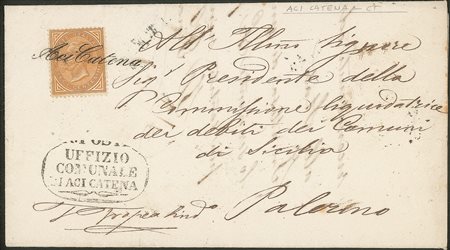 ACI CATENA - CT
Aci Catena
All' Illmo Signore
Sig.r Presidente della
Commissione liquidatrice
dei debiti dei Comuni
di Sicilia
Palermo
UFFIZIO
COMUNALE
DI ACI CATENA